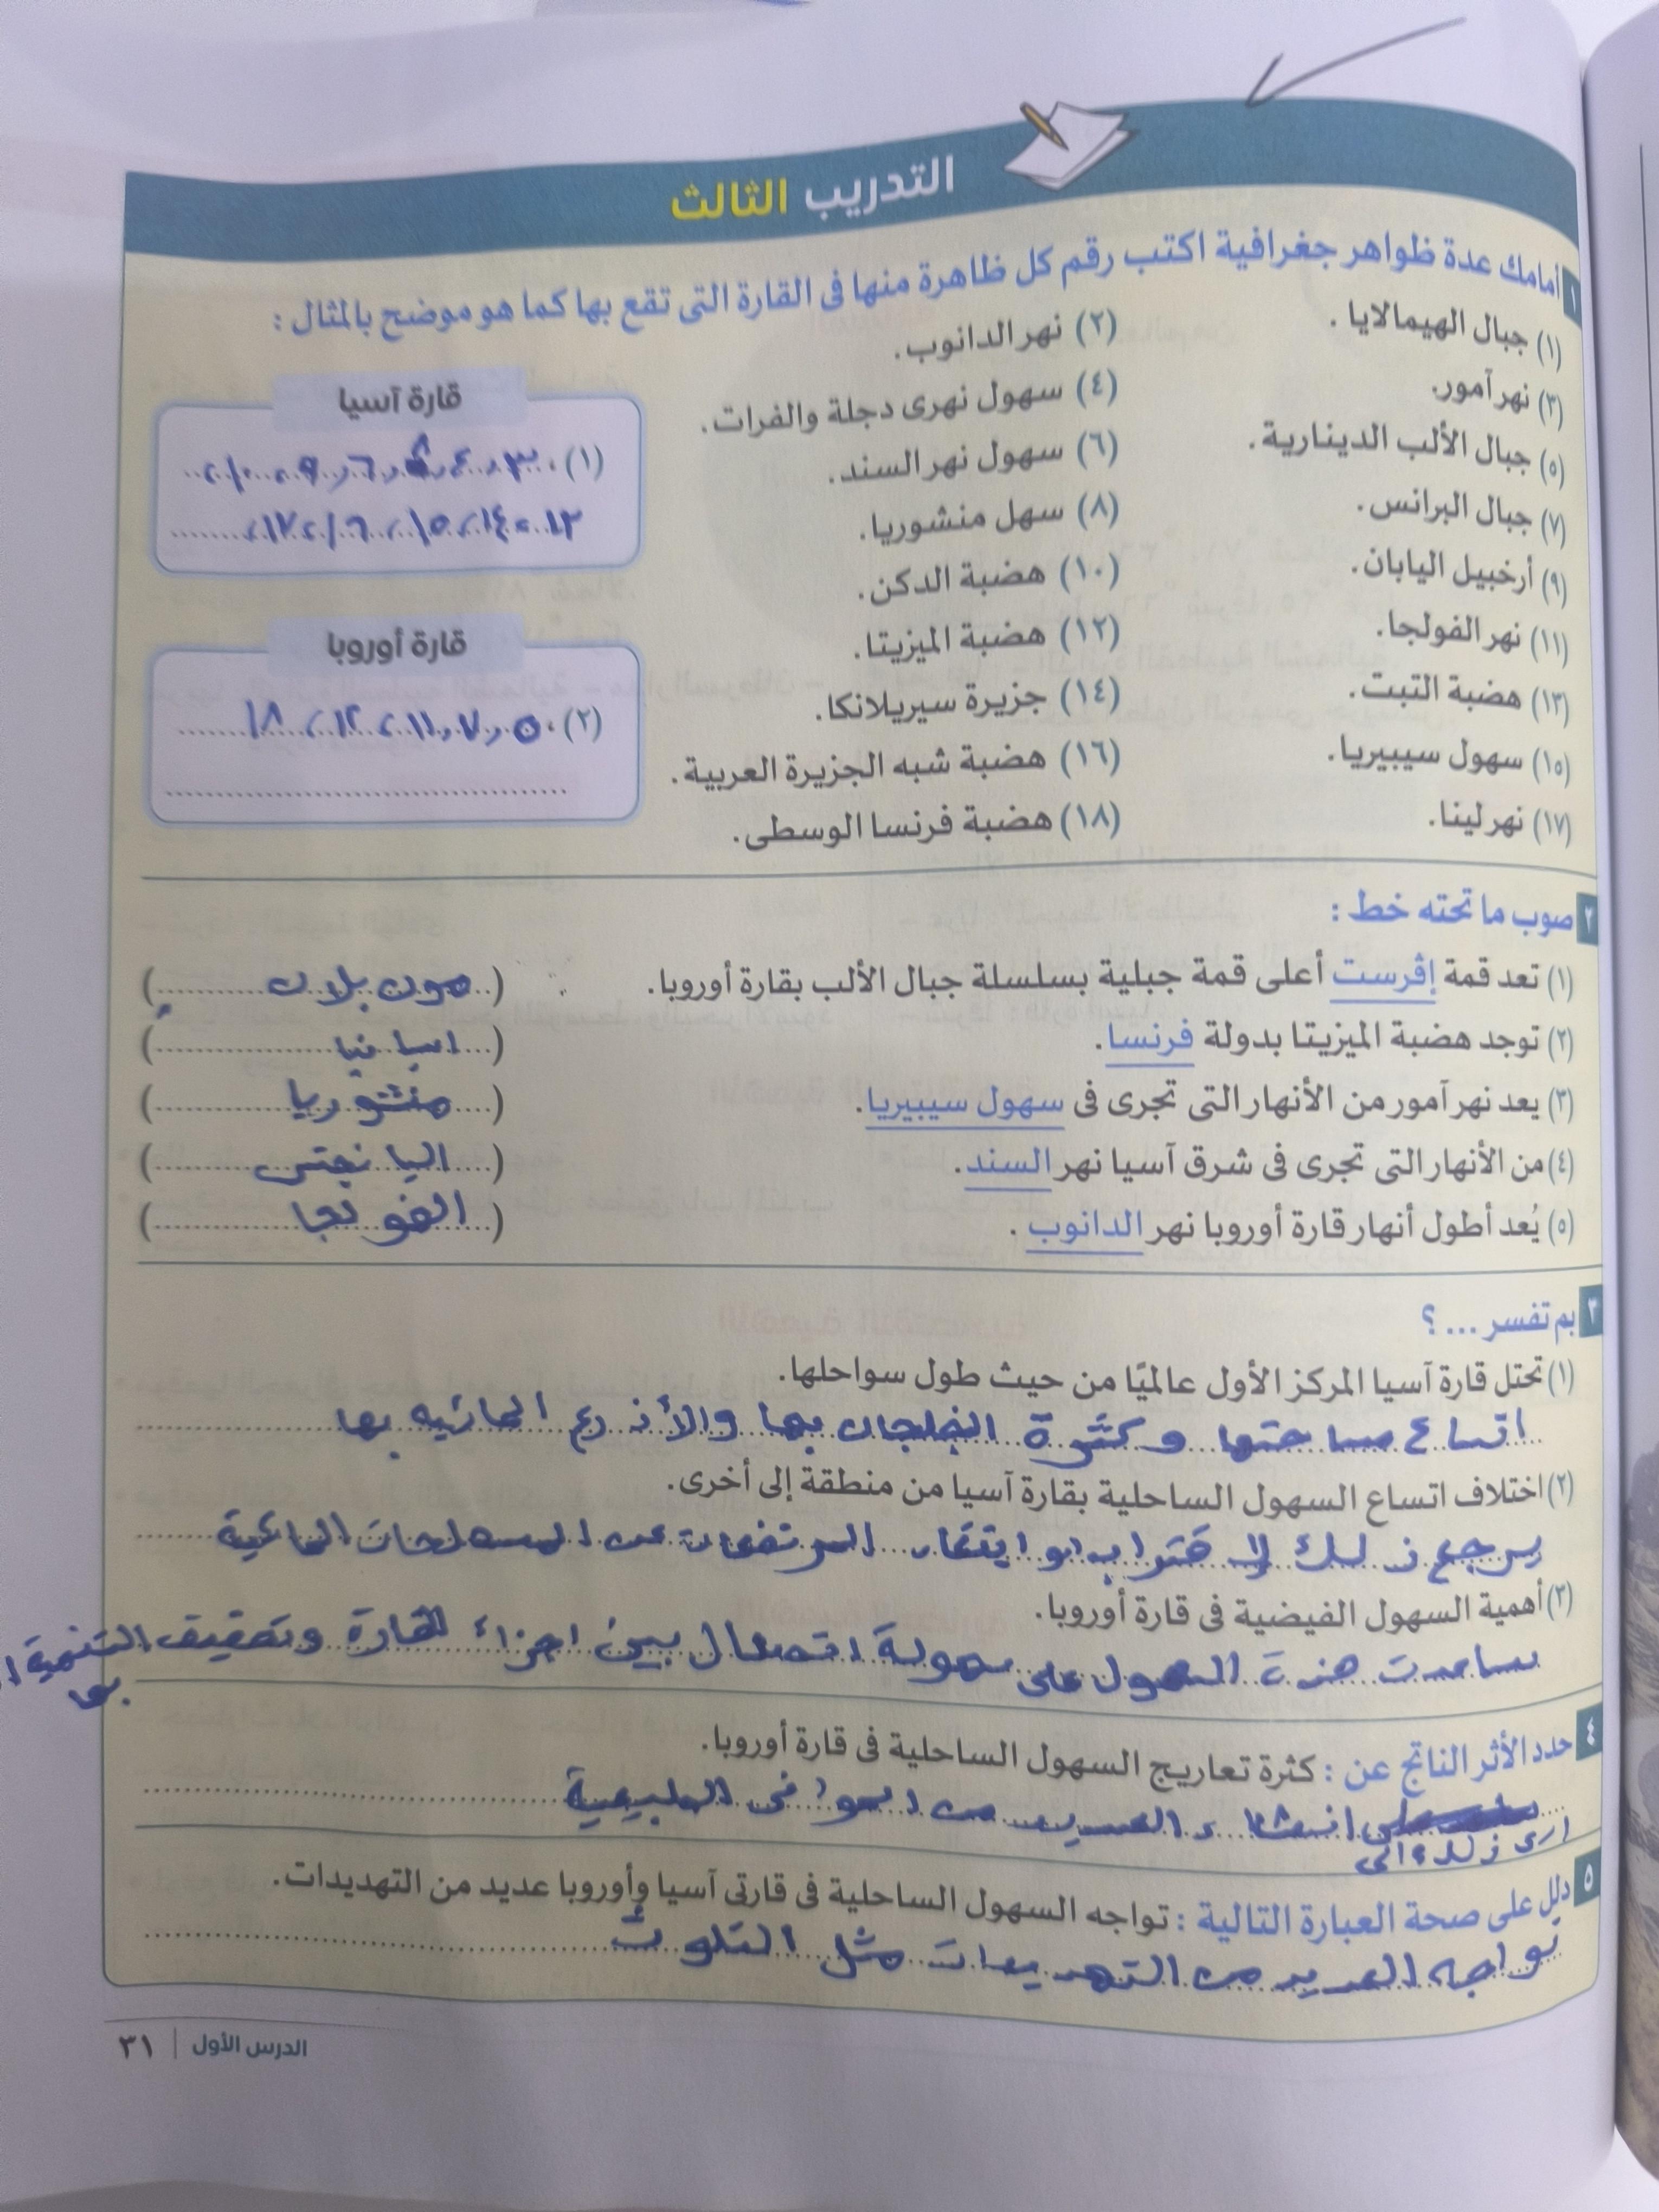 التدريب الثالث
١ أمامك عدة ظواهر جغرافية اكتب رقم كل ظاهرة منها فى القارة التى تقع بها كما هو موضح بالمثال :
(١) جبال الهيمالايا .
(٢) نهر الدانوب.
(٣) نهر آمور.
(٤) سهول نهرى دجلة والفرات.
(٥) جبال الألب الدينارية.
(٦) سهول نهر السند.
(٧) جبال البرانس.
(٨) سهل منشوريا.
(٩) أرخبيل اليابان.
(١٠) هضبة الدكن.
(١١) نهر الفولجا.
(١٢) هضبة الميزيتا.
(١٣) هضبة التبت.
(١٤) جزيرة سيريلانكا.
(١٥) سهول سيبيريا.
(١٦) هضبة شبه الجزيرة العربية.
(١٧) نهر لينا.
(١٨) هضبة فرنسا الوسطى.
قارة آسيا
(١) ، ٣ ، ٤ ، ٦ ، ٩ ، ١٠ ،
١٣ ، ١٤ ، ١٥ ، ١٦ ، ١٧ ،
قارة أوروبا
(٢) ، ٥ ، ٧ ، ١١ ، ١٢ ، ١٨
٢ صوب ما تحته خط :
(١) تعد قمة إڤرست أعلى قمة جبلية بسلسلة جبال الألب بقارة أوروبا. (مون بلان)
(٢) توجد هضبة الميزيتا بدولة فرنسا. (اسبانيا)
(٣) يعد نهر آمور من الأنهار التى تجرى فى سهول سيبيريا. (منشوريا)
(٤) من الأنهار التى تجرى فى شرق آسيا نهر السند. (اليانجتس)
(٥) يُعد أطول أنهار قارة أوروبا نهر الدانوب . (الفولجا)
٣ بم تفسر ... ؟
(١) تحتل قارة آسيا المركز الأول عالميًا من حيث طول سواحلها.
اتساع مساحتها وكثرة الخلجان بها والأذرع المائيه بها
(٢) اختلاف اتساع السهول الساحلية بقارة آسيا من منطقة إلى أخرى.
يرجع ذلك المرتفعات عن المسطحات المائية
(٣) أهمية السهول الفيضية فى قارة أوروبا.
ساعدت هذة السهول على سهولة اتصال بين اجزاء القارة وتحقيق التنمية
بها
٤ حدد الأثر الناتج عن : كثرة تعاريج السهول الساحلية فى قارة أوروبا.
انشاء العديد من الموانى الطبيعية
ادى ذلك الى
٥ دلل على صحة العبارة التالية : تواجه السهول الساحلية فى قارتى آسيا وأوروبا عديد من التهديدات.
تواجه العديد من التهديدات مثل التلوث
الدرس الأول | ٣١